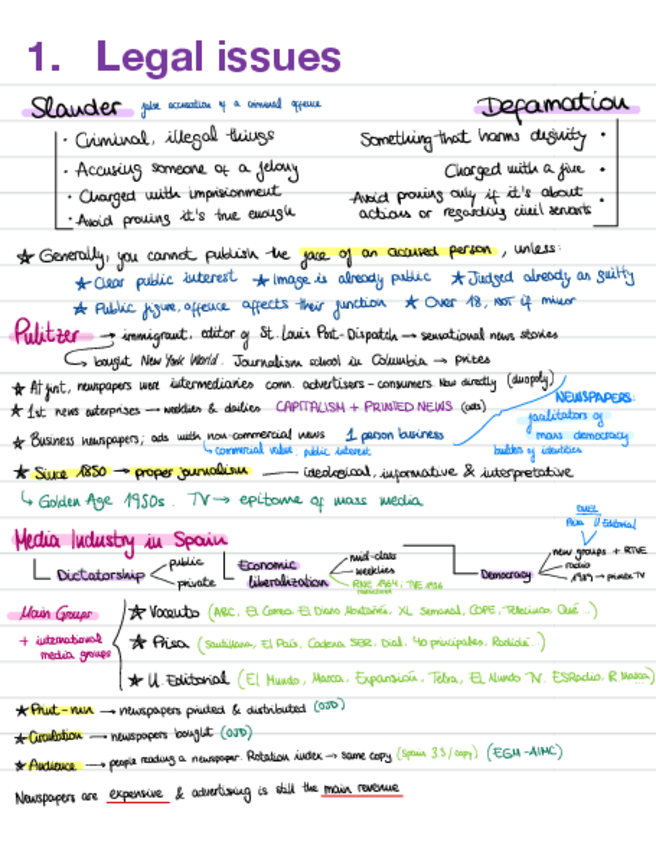 1. Legal issues
Slander false accusation of a criminal offence
Defamation
· Criminal, illegal things
Something that harms dignity ·
· Accusing someone of a felony
Charged with a fine ·
· Charged with imprisionment
Avoid proving only if it's about
· Avoid proving it's true enough
actions or regarding civil servants ·
★ Generally, you cannot publish the face of an accused person, unless:
★ Clear public interest ★ Image is already public ★ Judged already as guilty
★ Public figure, offence affects their function ★ Over 18, NOT if minor
Pulitzer → immigrant, editor of St. Louis Post-Dispatch → sensational news stories
↳ bought New York World. Journalism school in Columbia → prizes
★ At first, newspapers were intermediaries comm. advertisers - consumers. Now directly (duopoly)
★ 1st news enterprises → weeklies & dailies CAPITALISM + PRINTED NEWS (ads)
NEWSPAPERS:
facilitators of
mass democracy
builders of identities
★ Business newspapers; ads with non-commercial news 1 person business
↳ commercial value, public interest
★ Since 1850 → proper journalism — ideological, informative & interpretative
↳ Golden Age 1950s. TV → epitome of mass media
Media Industry in Spain
Prisa U Editorial
Dictatorship
public
private
Economic
liberalization
mid-class
weeklies
RNE 1964, TVE 1956
Democracy
new groups + RTVE
radio
1989 → private TV
Main Groups
+ international
media groups
★ Vocento (ABC, El Correo, El Diario Montañés, XL Semanal, COPE, Telecinco, Qué...)
★ Prisa (Santillana, El País, Cadena SER, Dial, 40 principales, Radiolé..)
★ U. Editorial (El Mundo, Marca, Expansión, Telva, El Mundo TV. ESRadio, R. Marca)
★ Print-run → newspapers printed & distributed (OJD)
★ Circulation → newspapers bought (OJD)
★ Audience → people reading a newspaper. Rotation index → same copy (Spain 3.5/copy) (EGM-AIMC)
Newspapers are expensive & advertising is still the main revenue